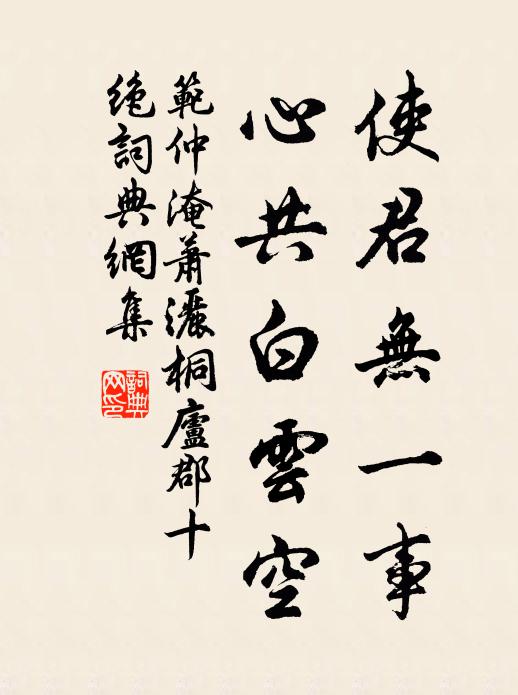 使君無一事
心共白雲空
範仲淹蕭灑桐廬郡十
絶詞典網集
詞典
网印